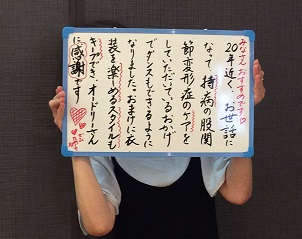 みなさんおすすめです!
20年近く、お世話に
なって、持病の股関
節変形症のケアを
していただいているおかげ
でダンスもできるように
なりました。おまけに衣
装を楽しめるスタイルも
キープでき、オードリーさん
に感謝です